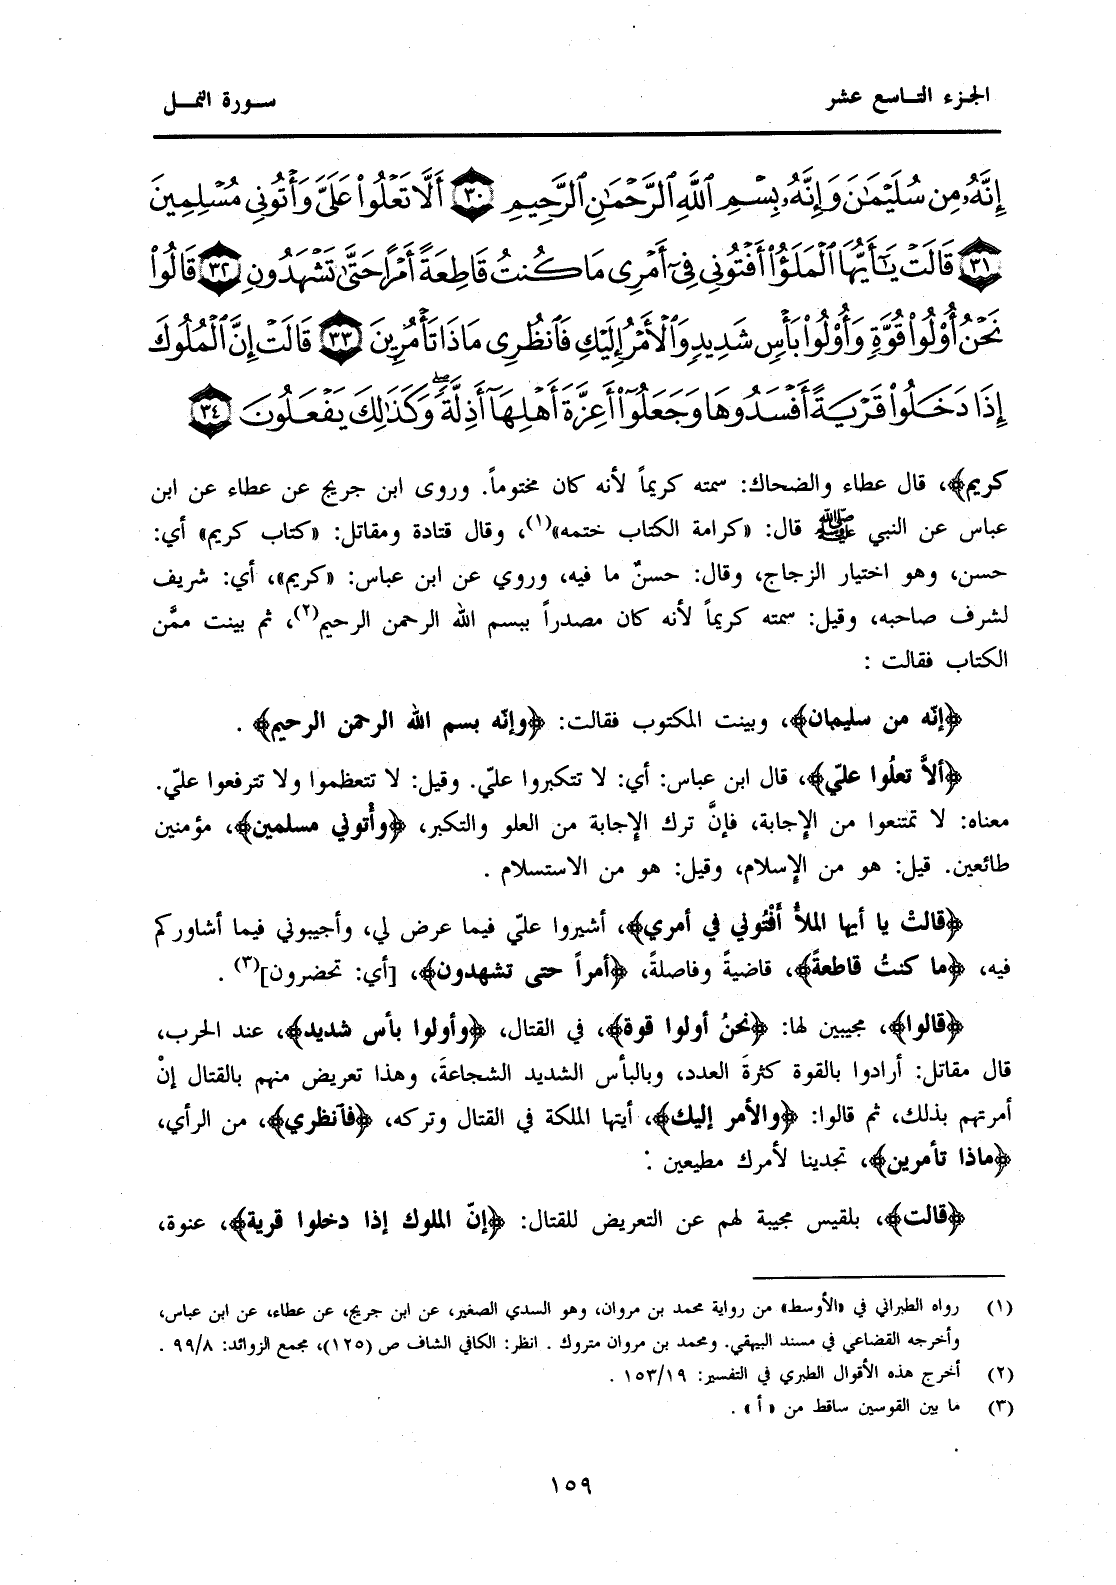 الجزء التاسع عشر
سورة النمل
إِنَّهُۥ مِن سُلَيۡمَٰنَ وَإِنَّهُۥ بِسۡمِ ٱللَّهِ ٱلرَّحۡمَٰنِ ٱلرَّحِيمِ ٣٠ أَلَّا تَعۡلُواْ عَلَيَّ وَأۡتُونِي مُسۡلِمِينَ
٣١ قَالَتۡ يَٰٓأَيُّهَا ٱلۡمَلَؤُاْ أَفۡتُونِي فِيٓ أَمۡرِي مَا كُنتُ قَاطِعَةً أَمۡرًا حَتَّىٰ تَشۡهَدُونِ ٣٢ قَالُواْ
نَحۡنُ أُوْلُواْ قُوَّةٖ وَأُوْلُواْ بَأۡسٖ شَدِيدٖ وَٱلۡأَمۡرُ إِلَيۡكِ فَٱنظُرِي مَاذَا تَأۡمُرِينَ ٣٣ قَالَتۡ إِنَّ ٱلۡمُلُوكَ
إِذَا دَخَلُواْ قَرۡيَةً أَفۡسَدُوهَا وَجَعَلُوٓاْ أَعِزَّةَ أَهۡلِهَآ أَذِلَّةٗۖ وَكَذَٰلِكَ يَفۡعَلُونَ ٣٤
كريم﴾، قال عطاء والضحاك: سمته كريماً لأنه كان مختوماً. وروى ابن جريج عن عطاء عن ابن
عباس عن النبي ﷺ قال: «كرامة الكتاب ختمه»(١)، وقال قتادة ومقاتل: «كتاب كريم» أي:
حسن، وهو اختيار الزجاج، وقال: حسنٌ ما فيه، وروي عن ابن عباس: «كريم»، أي: شريف
لشرف صاحبه، وقيل: سمته كريماً لأنه كان مصدراً ببسم الله الرحمن الرحيم(٢)، ثم بينت ممَّن
الكتاب فقالت :
﴿إنّه من سليمان﴾، وبينت المكتوب فقالت: ﴿وإنّه بسم الله الرحمن الرحيم﴾ .
﴿ألاَّ تعلُوا عليّ﴾، قال ابن عباس: أي: لا تتكبروا عليّ. وقيل: لا تتعظموا ولا تترفعوا عليّ.
معناه: لا تمتنعوا من الإجابة، فإنَّ ترك الإجابة من العلو والتكبر، ﴿وأْتوني مسلمين﴾، مؤمنين
طائعين. قيل: هو من الإسلام، وقيل: هو من الاستسلام .
﴿قالتْ يا أيها الملأُ أَفْتُوني في أمري﴾، أشيروا عليّ فيما عرض لي، وأجيبوني فيما أشاوركم
فيه، ﴿ما كنتُ قاطعةً﴾، قاضيةً وفاصلةً، ﴿أمراً حتى تشهدون﴾، [أي: تحضرون](٣) .
﴿قالوا﴾، مجيبين لها: ﴿نحنُ أولوا قوة﴾، في القتال، ﴿وأولوا بأس شديد﴾، عند الحرب،
قال مقاتل: أرادوا بالقوة كثرةَ العدد، وبالبأس الشديد الشجاعةَ، وهذا تعريض منهم بالقتال إنْ
أمرتهم بذلك، ثم قالوا: ﴿والأمر إليك﴾، أيتها الملكة في القتال وتركه، ﴿فآنظري﴾، من الرأي،
﴿ماذا تأمرين﴾، تجدينا لأمرك مطيعين .
﴿قالت﴾، بلقيس مجيبة لهم عن التعريض للقتال: ﴿إنّ الملوك إذا دخلوا قرية﴾، عنوة،
(١) رواه الطبراني في «الأوسط» من رواية محمد بن مروان، وهو السدي الصغير، عن ابن جريج، عن عطاء، عن ابن عباس،
وأخرجه القضاعي في مسند البيهقي. ومحمد بن مروان متروك . انظر: الكافي الشاف ص (١٢٥)، مجمع الزوائد: ٩٩/٨ .
(٢) أخرج هذه الأقوال الطبري في التفسير: ١٥٣/١٩ .
(٣) ما بين القوسين ساقط من «أ» .
١٥٩